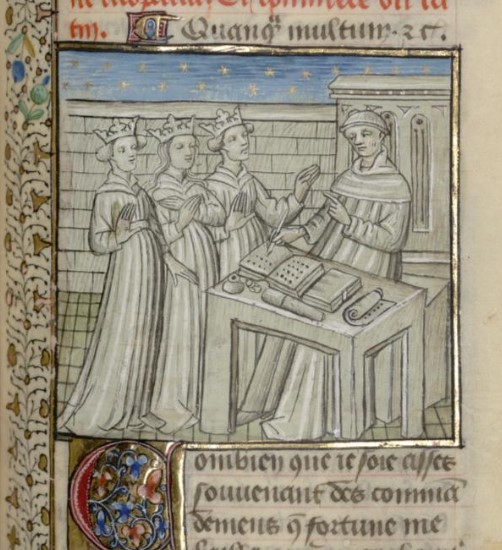 Et commence ou la
tin. Quanq̃ multum. ⁊c.
Combien que ie soie asses
souuenant des commã
demens q̃ fortune me